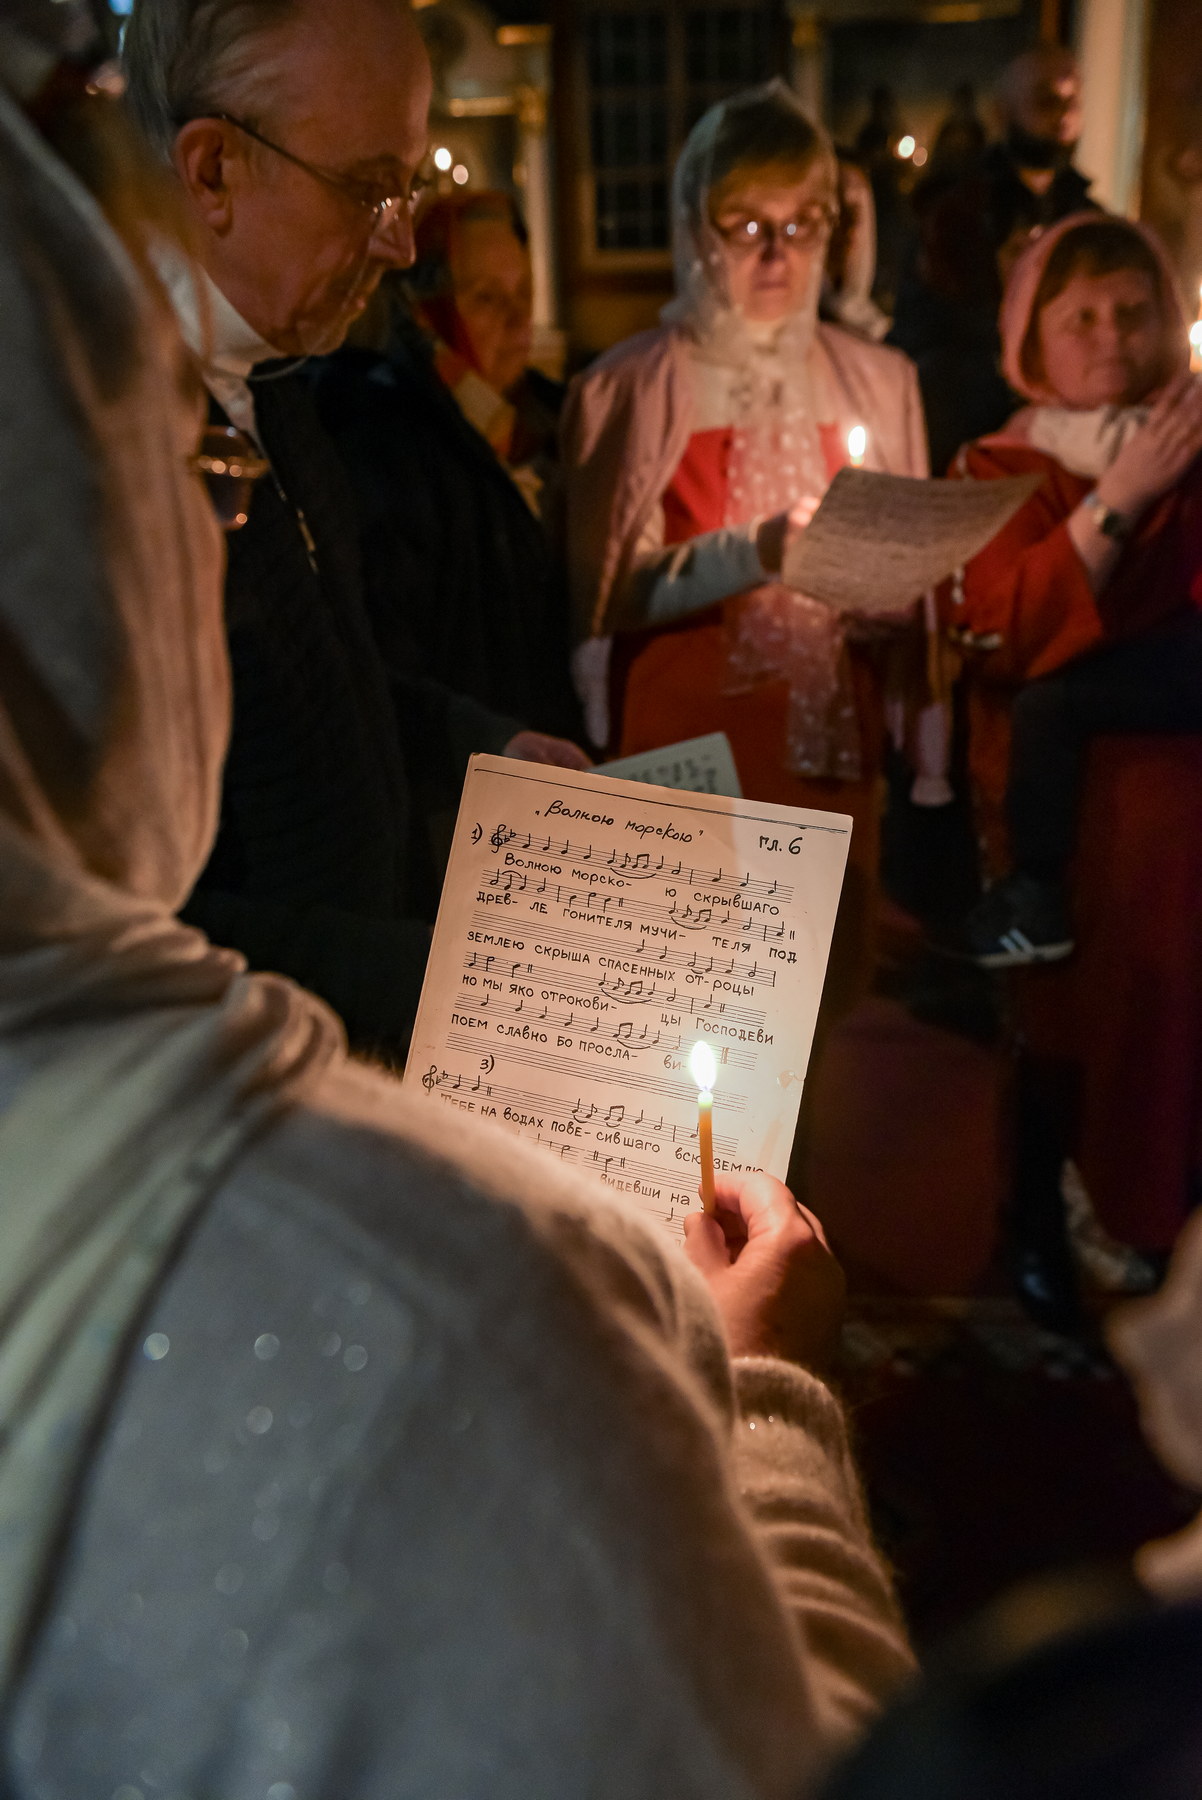 „Волною морскою"
гл. 6
1)
Волною морско- ю скрывшаго
древ- ле гонителя мучи- теля под
землею скрыша спасенных от-роцы
но мы яко отрокови- цы Господеви
поем славно бо просла- ви-
3)
Тебе на водах пове- сившаго всю землю
видевши на